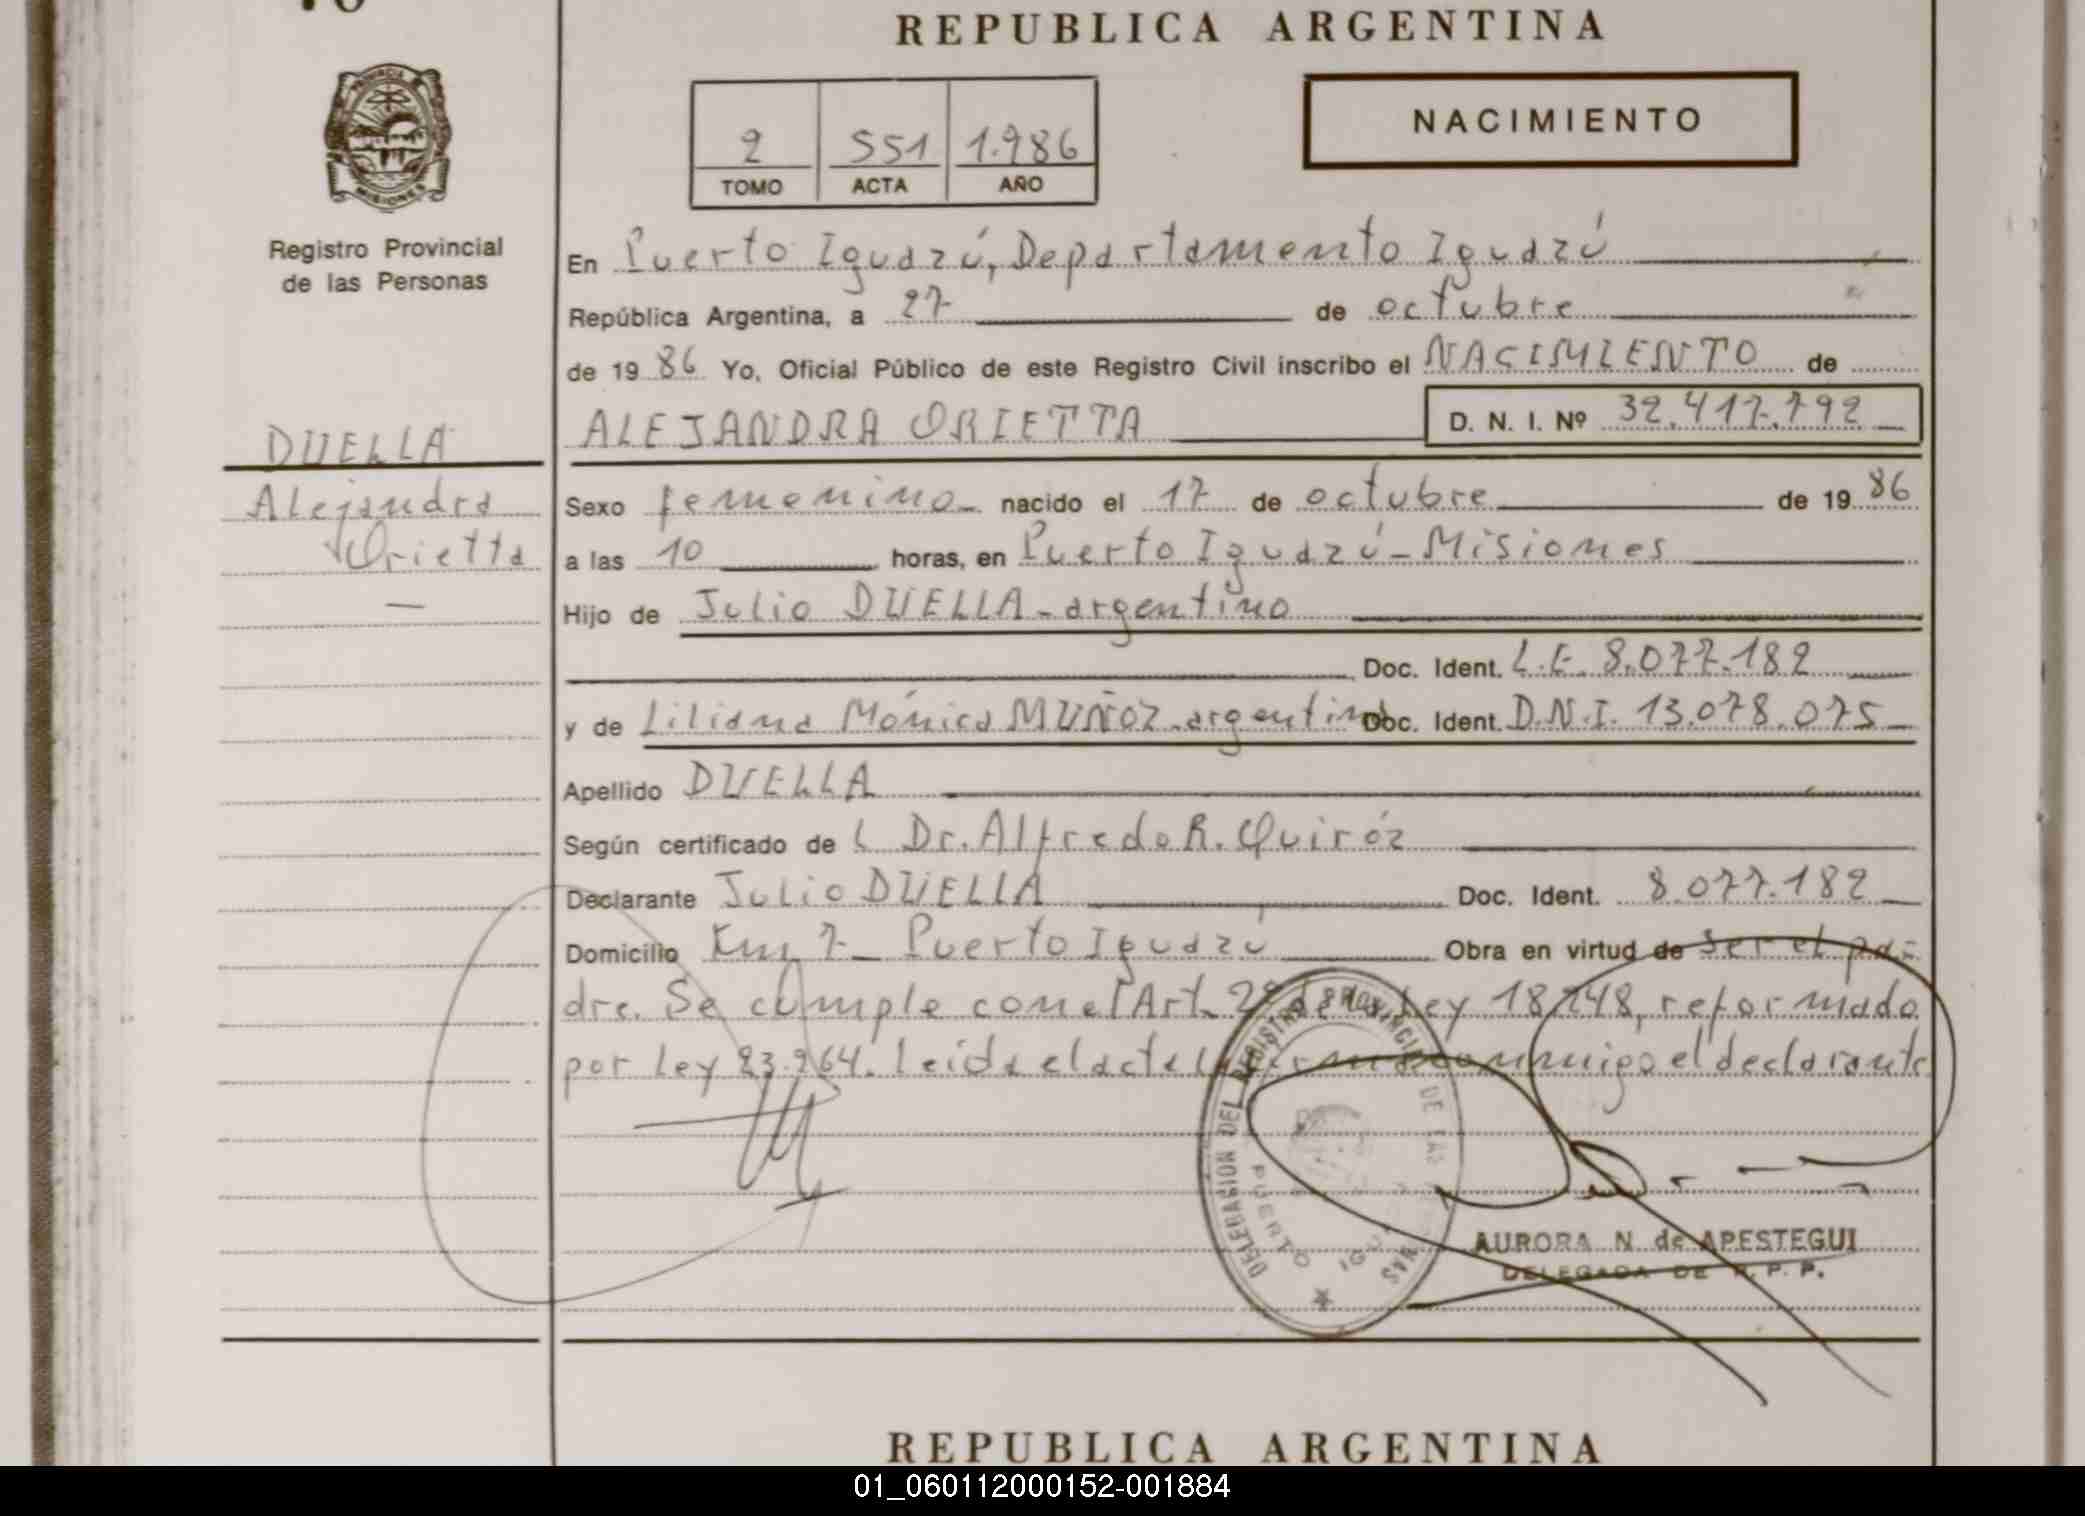 REPUBLICA ARGENTINA
PROVINCIA
MISIONES
Registro Provincial
de las Personas
2 551 1.986
TOMO ACTA AÑO
NACIMIENTO
En Puerto Iguazú, Departamento Iguazú
República Argentina, a 27 de octubre
de 19 86 Yo, Oficial Público de este Registro Civil inscribo el NACIMIENTO de
ALEJANDRA ORIETTA D. N. I. Nº 32.417.792
DUELLA
Alejandra
Orietta
Sexo femenino nacido el 17 de octubre de 19 86
a las 10 horas, en Puerto Iguazú - Misiones
Hijo de Julio DUELLA - argentino
Doc. Ident. L.E. 8.077.182
y de Liliana Mónica MUÑOZ - argentina Doc. Ident. D.N.I. 13.078.075
Apellido DUELLA
Según certificado de L Dr. Alfredo R. Quiróz
Declarante Julio DUELLA Doc. Ident. 8.077.182
Domicilio Km 7 - Puerto Iguazú Obra en virtud de ser el pa-
dre. Se cumple con el Art. de la Ley 18248, reformado
por Ley 23.264. Leída el acta la firma conmigo el declarante
DELEGACION DEL REGISTRO PROVINCIAL DE LAS PERSONAS
PUERTO IGUAZU
AURORA N. de APESTEGUI
DELEGADA DE R. P. P.
REPUBLICA ARGENTINA
01_060112000152-001884